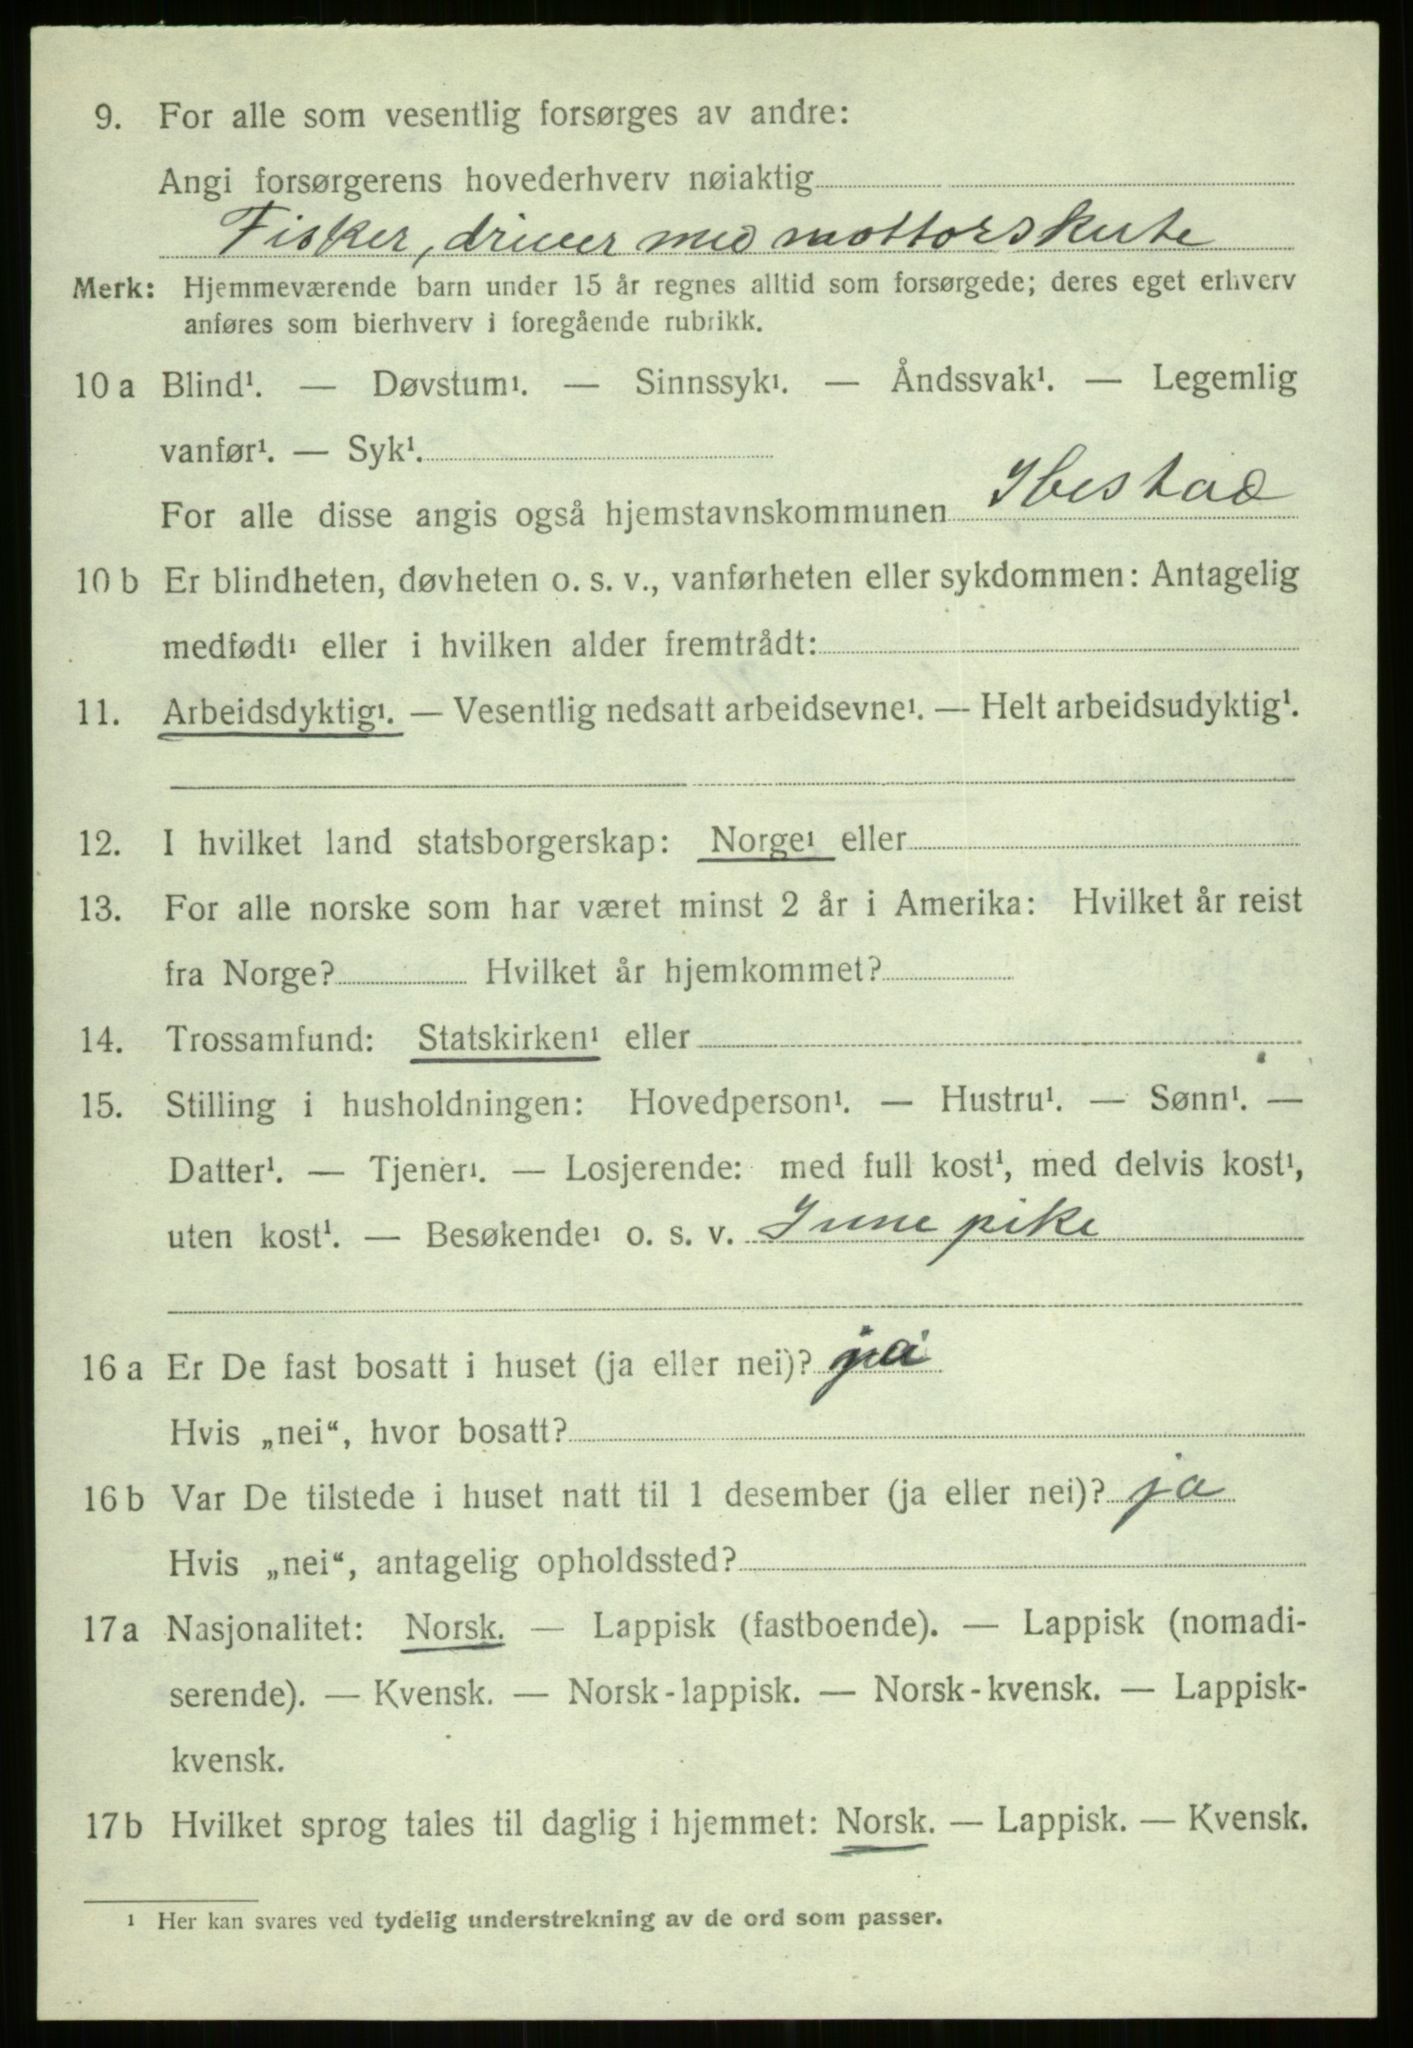 9. For alle som vesentlig forsørges av andre:
Angi forsørgerens hovederhverv nøiaktig
Fisker, driver med mottorskute
Merk: Hjemmeværende barn under 15 år regnes alltid som forsørgede; deres eget erhverv
anføres som bierhverv i foregående rubrikk.
10 a Blind¹. — Døvstum¹. — Sinnssyk¹. — Åndssvak¹. — Legemlig
vanfør¹. — Syk¹.
For alle disse angis også hjemstavnskommunen Ibestad
10 b Er blindheten, døvheten o. s. v., vanførheten eller sykdommen: Antagelig
medfødt¹ eller i hvilken alder fremtrådt:
11. Arbeidsdyktig¹. — Vesentlig nedsatt arbeidsevne¹. — Helt arbeidsudyktig¹.
12. I hvilket land statsborgerskap: Norge¹ eller
13. For alle norske som har været minst 2 år i Amerika: Hvilket år reist
fra Norge? Hvilket år hjemkommet?
14. Trossamfund: Statskirken¹ eller
15. Stilling i husholdningen: Hovedperson¹. — Hustru¹. — Sønn¹. —
Datter¹. — Tjener¹. — Losjerende: med full kost¹, med delvis kost¹,
uten kost¹. — Besøkende¹ o. s. v. Inne pike
16 a Er De fast bosatt i huset (ja eller nei)? ja
Hvis „nei“, hvor bosatt?
16 b Var De tilstede i huset natt til 1 desember (ja eller nei)? ja
Hvis „nei“, antagelig opholdssted?
17 a Nasjonalitet: Norsk. — Lappisk (fastboende). — Lappisk (nomadi-
serende). — Kvensk. — Norsk-lappisk. — Norsk-kvensk. — Lappisk-
kvensk.
17 b Hvilket sprog tales til daglig i hjemmet: Norsk. — Lappisk. — Kvensk.
¹ Her kan svares ved tydelig understrekning av de ord som passer.